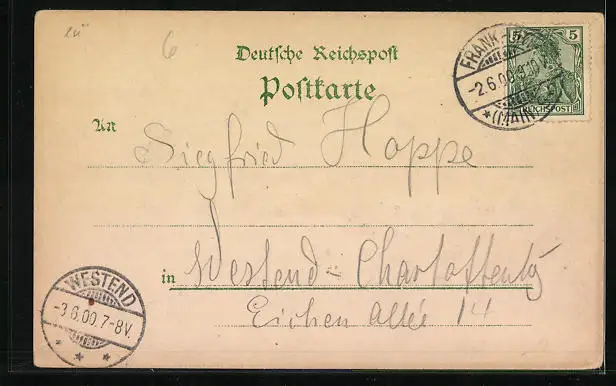 6
Deutsche Reichspost
Postkarte
An
Siegfried Hoppe
in Westend-Charlottenbg
Eichen Allée 14
5 5
REICHSPOST
FRANKFURT
-2.6.00.9-10
* (MAIN)
WESTEND
-3.6.00.7-8V.
* * *